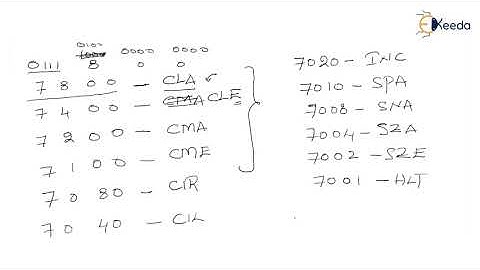 Ekeeda
0100
1000 0000 0000
0111 8 0 0
7 8 00 - CLA
7 4 00 - CMA CLE
7 2 00 - CMA
7 1 00 - CME
70 80 - CIR
70 40 - CIL
7020 - INC
7010 - SPA
7008 - SNA
7004 - SZA
7002 - SZE
7001 - HLT